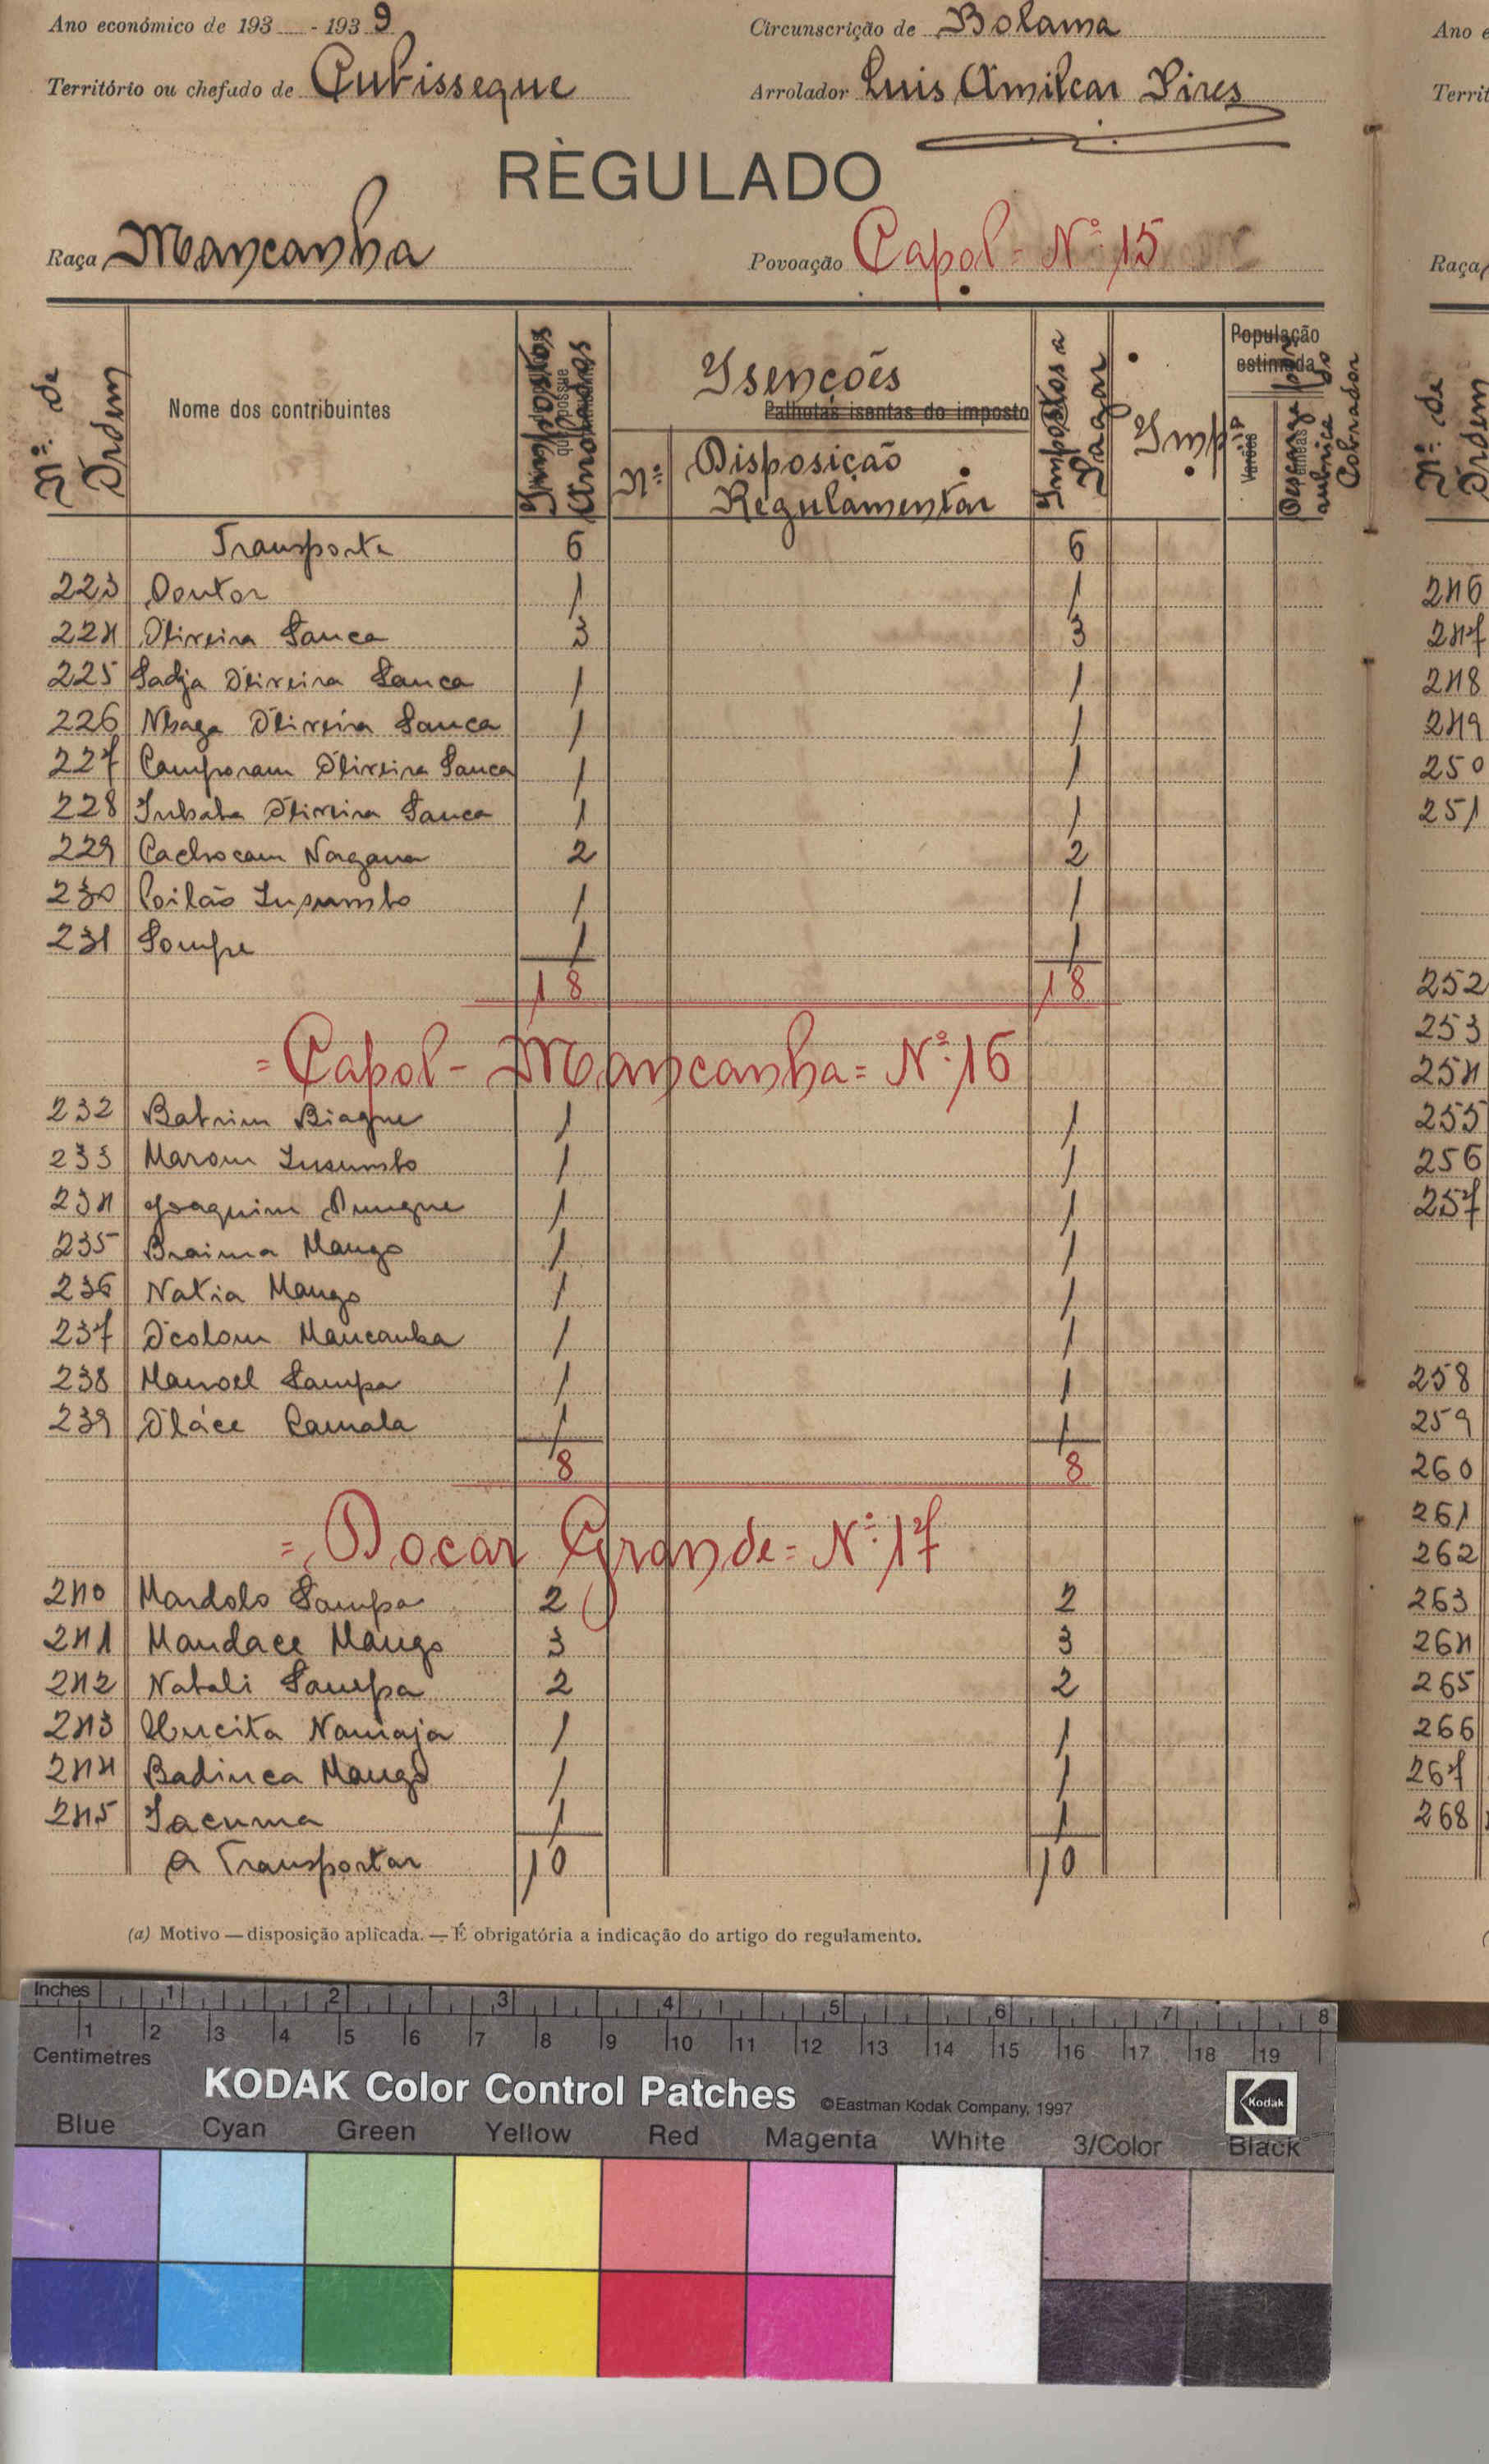 Ano económico de 193 - 1939 Circunscrição de Bolama
Território ou chefado de Cubisseque Arrolador Luis Amilcar Pires
RÈGULADO
Raça Mancanha Povoação Capol - Nº 15
Nº de Ordem Nome dos contribuintes Impostos Arrolados Isenções Impostos a Pagar Imp População estimada
Palhotas isentas do imposto
Nº Disposição Regulamentar Varões Descarga Cobrador
Transporte 6 6
223 Doutor 1 1
224 Oliveira Sanca 3 3
225 Sadja Oliveira Sanca 1 1
226 Nbaga Oliveira Sanca 1 1
227 Camporam Oliveira Sanca 1 1
228 Inbaba Oliveira Sanca 1 1
229 Cachocam Nagana 2 2
230 Coilão Insumbo 1 1
231 Sompe 1 1
18 18
= Capol - Mancanha = Nº 16
232 Batrim Biague 1 1
233 Marom Insumbo 1 1
234 Joaquim Dungue 1 1
235 Braima Mango 1 1
236 Natia Mango 1 1
237 Ocolom Mancanha 1 1
238 Manoel Sampa 1 1
239 Oláce Camala 1 1
8 8
= Docar Grande = Nº 17
240 Mandolo Sampa 2 2
241 Mandace Mango 3 3
242 Natali Sampa 2 2
243 Namaja 1 1
244 Badinca Mango 1 1
245 Iacuma 1 1
A Transportar 10 10
(a) Motivo — disposição aplicada. — É obrigatória a indicação do artigo do regulamento.
Ano e
Territ
Raça
Nº de Ordem
246
247
248
249
250
251
252
253
254
255
256
257
258
259
260
261
262
263
264
265
266
267
268
Inches 1 2 3 4 5 6 7 8
1 2 3 4 5 6 7 8 9 10 11 12 13 14 15 16 17 18 19
Centimetres
KODAK Color Control Patches ©Eastman Kodak Company, 1997 Kodak
Blue Cyan Green Yellow Red Magenta White 3/Color Black